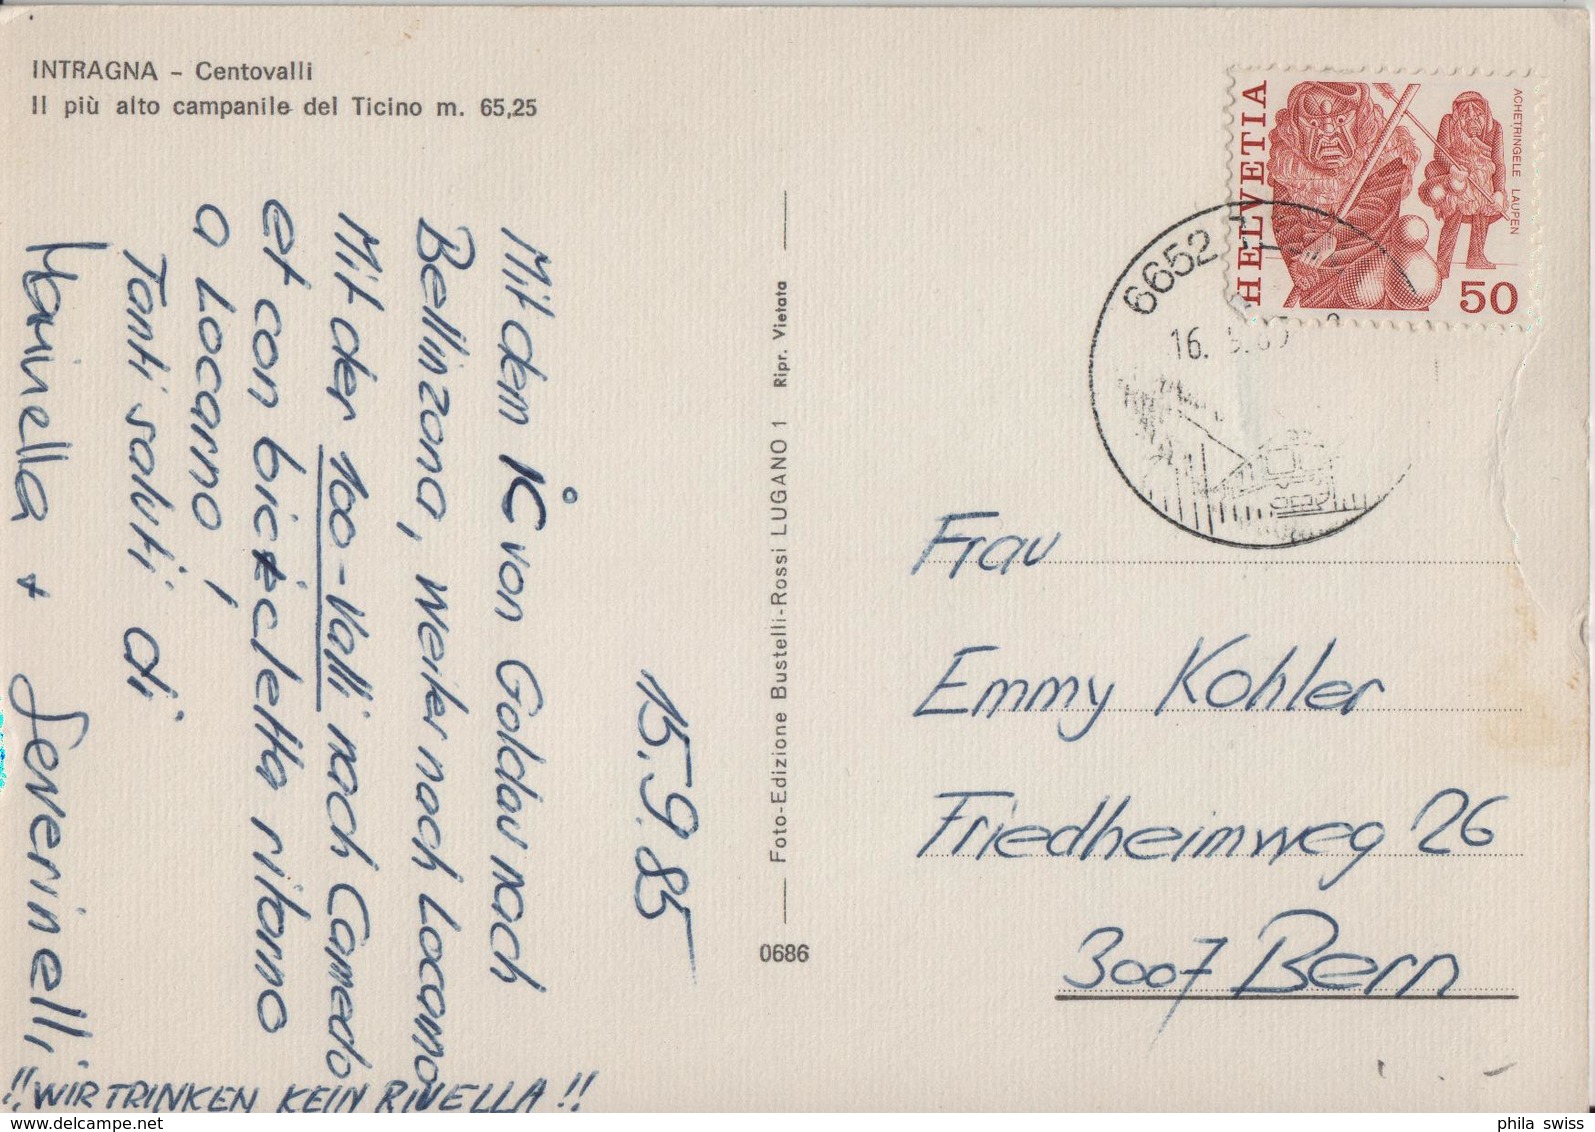 INTRAGNA – Centovalli
Il più alto campanile del Ticino m. 65,25
15.9.85
Mit dem IC von Goldau nach
Bellinzona, weiter nach Locarno
Mit der 100-Valli nach Camedo
et con bicicletta ritorno
a Locarno!
Tanti saluti di
Marinella + Severinelli
!! WIR TRINKEN KEIN RIVELLA !!
Foto-Edizione Bustelli-Rossi LUGANO 1 Ripr. Vietata
0686
HELVETIA
ACHETRINGELE LAUPEN
50
6652
16.
Frau
Emmy Kohler
Friedheimweg 26
3007 Bern
phila swiss
www.delcampe.net